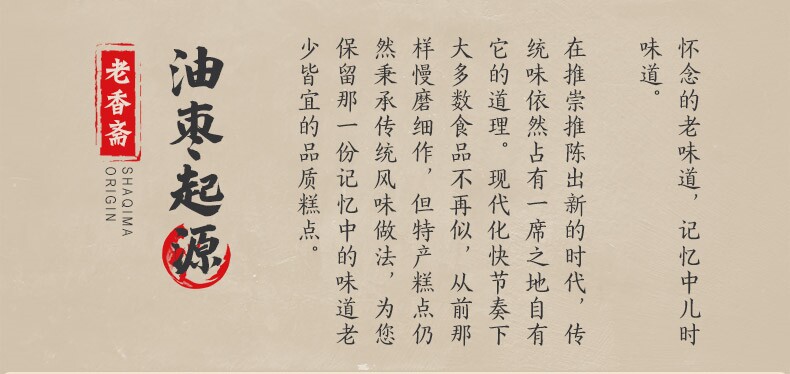 怀念的老味道，记忆中儿时
味道。
在推崇推陈出新的时代，传
统味依然占有一席之地自有
它的道理。现代化快节奏下
大多数食品不再似，从前那
样慢磨细作，但特产糕点仍
然秉承传统风味做法，为您
保留那一份记忆中的味道老
少皆宜的品质糕点。
油枣起源
老香斋
SHAQIMA
ORIGIN